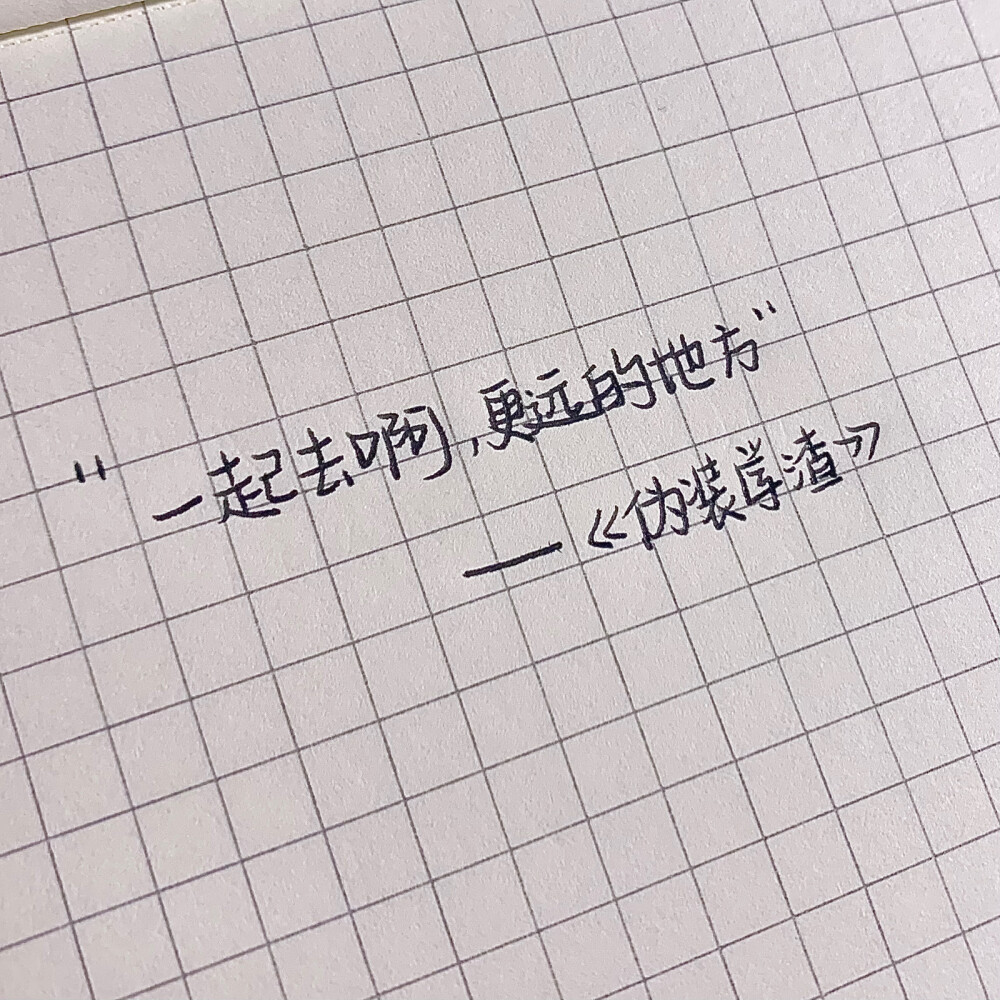 “一起去啊,更远的地方”
—《伪装学渣》